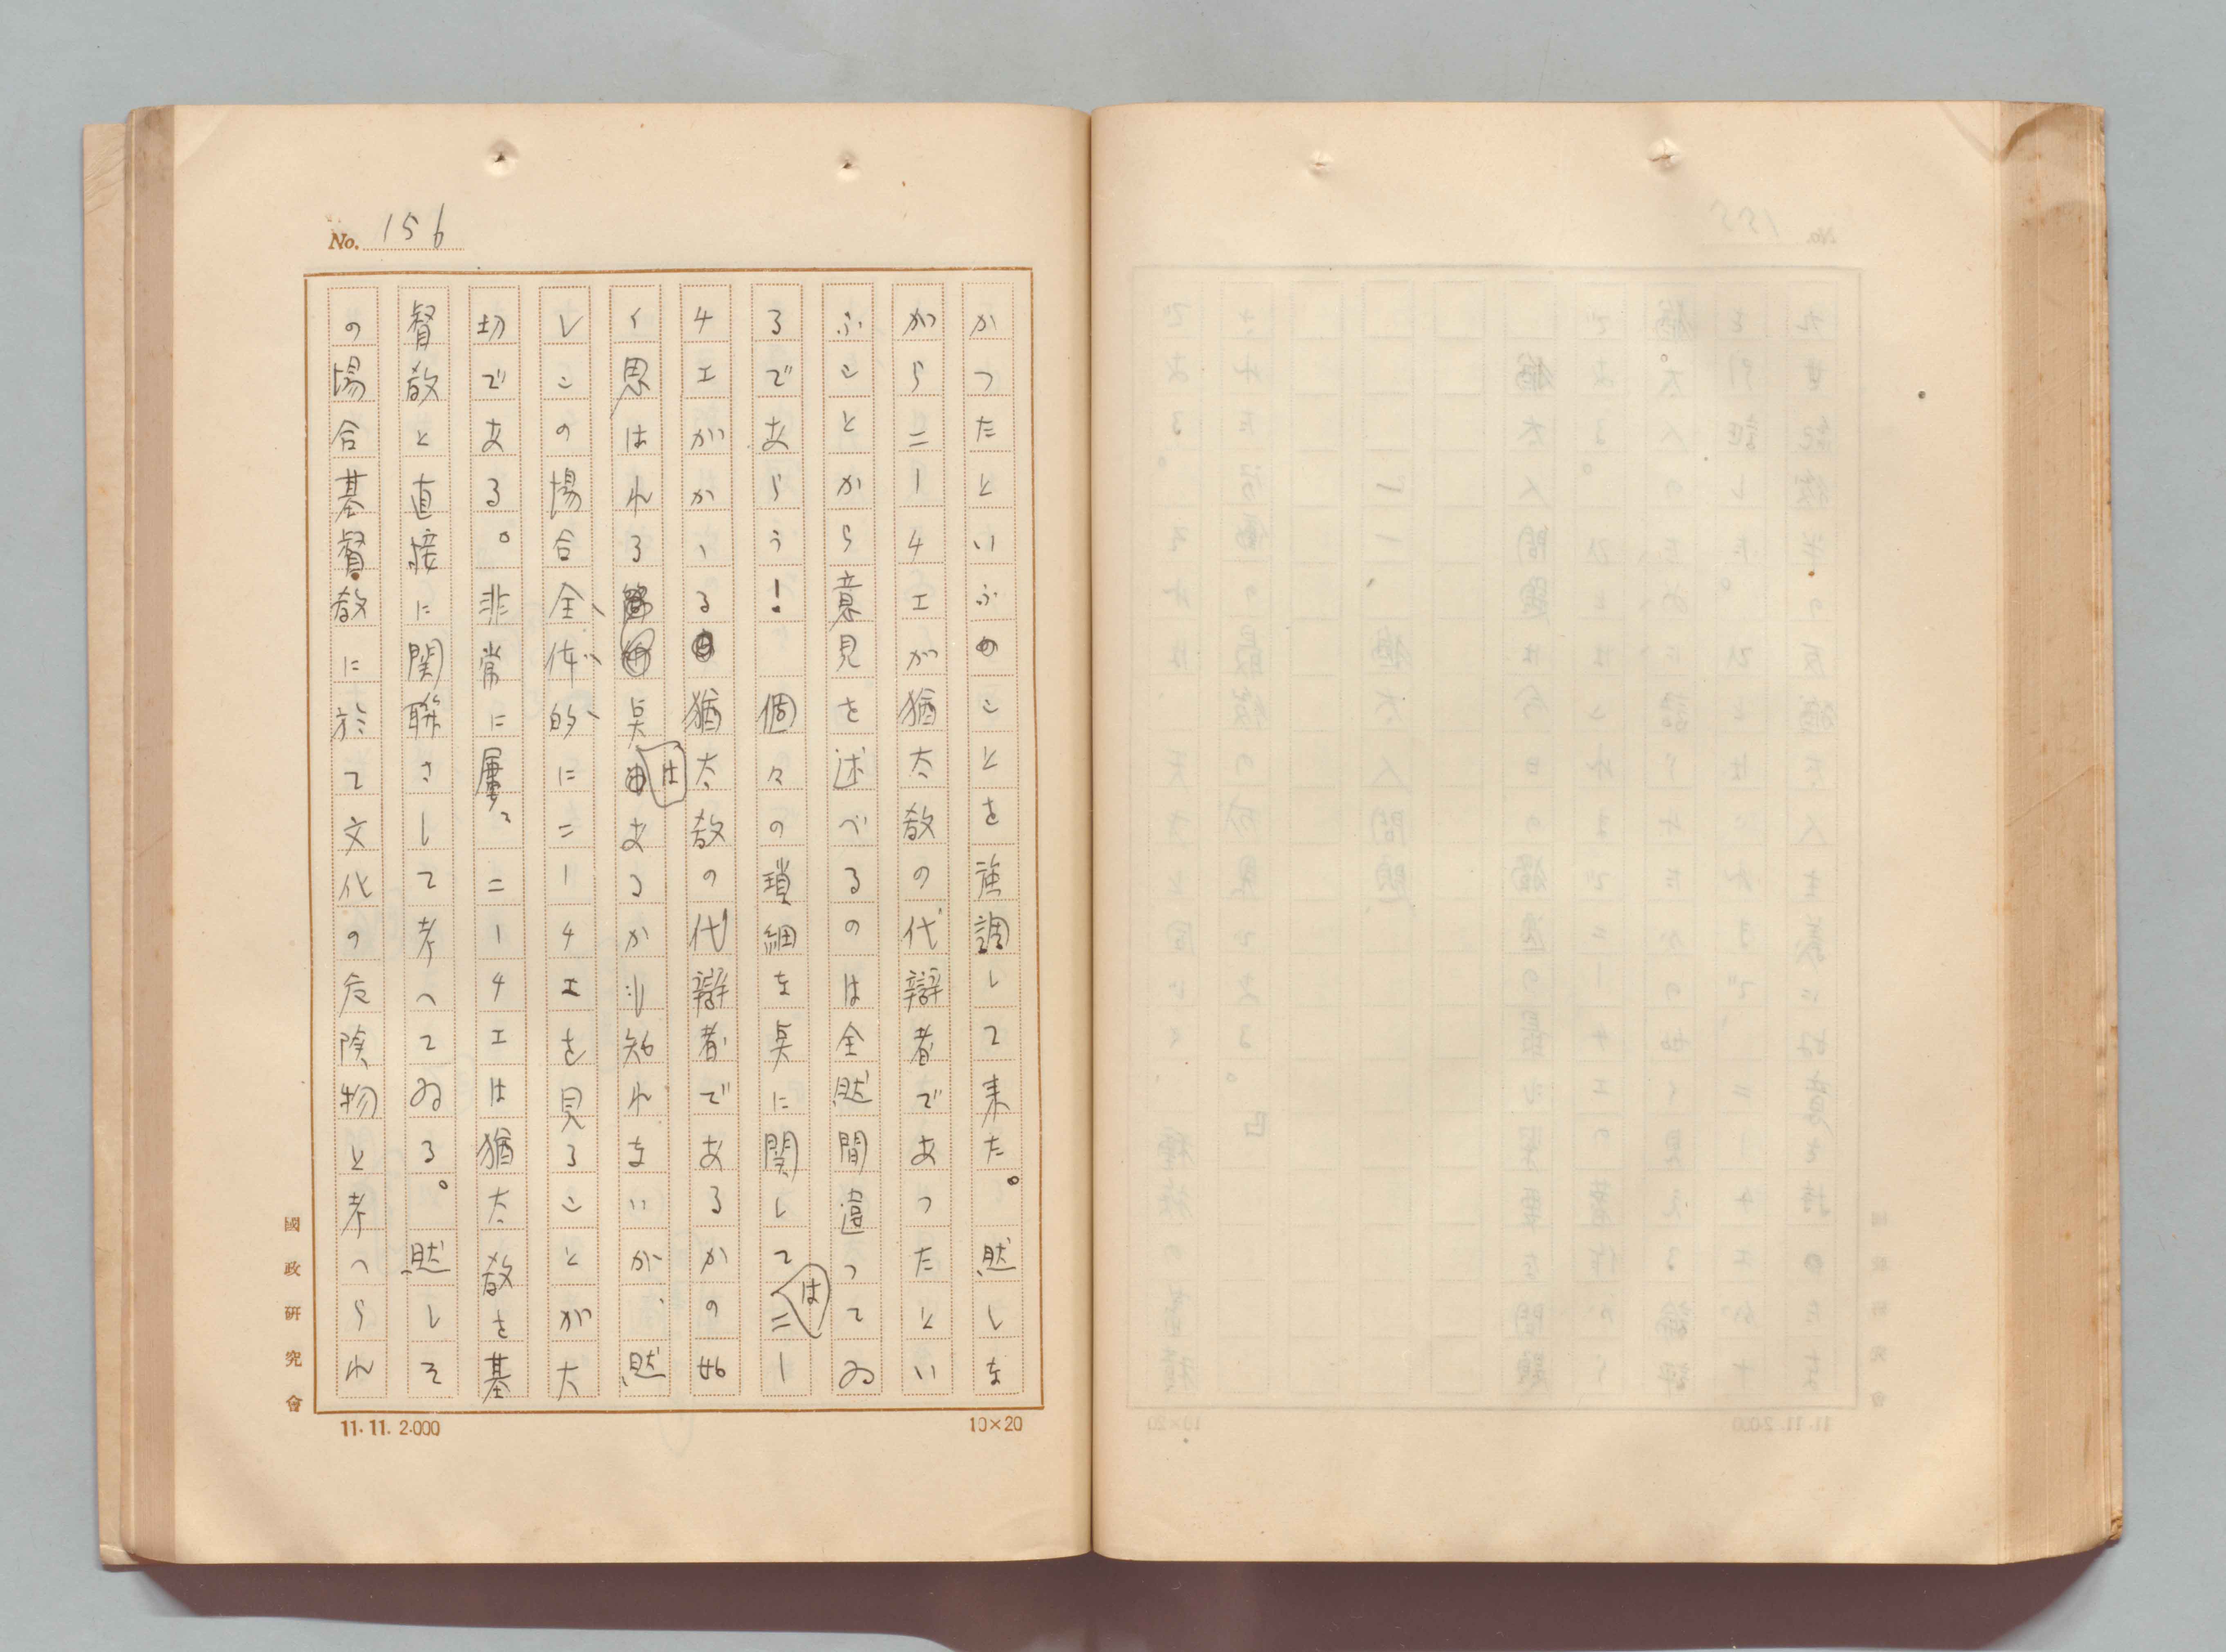 No. 156
かつたといふことを強調して来た。然しな
がらニーチエが猶太教の代辯者であつたとい
ふことから意見を述べるのは全然間違つてゐ
るであらう！ 個々の瑣細な点に関してはニー
チエがかゝる猶太教の代辯者であるかの如
く思はれる点はあるかも知れないが、然
しこの場合全体的にニーチエを見ることが大
切である。非常に屢々ニーチエは猶太教を基
督教と直接に関聯さして考へてゐる。然しそ
の場合基督教に於て文化の危険物と考へられ
國政研究會
11.11.2.000
10×20